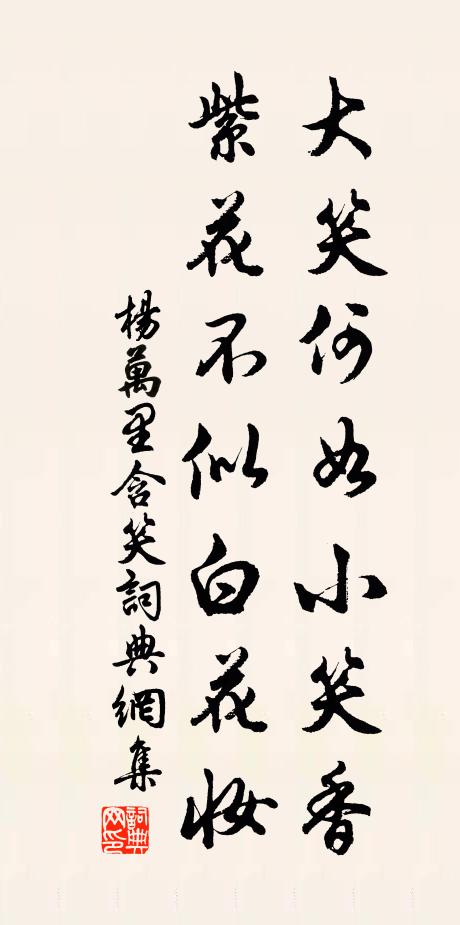 大笑何如小笑香
紫花不似白花妝
楊萬里含笑詞典網集
詞典網印